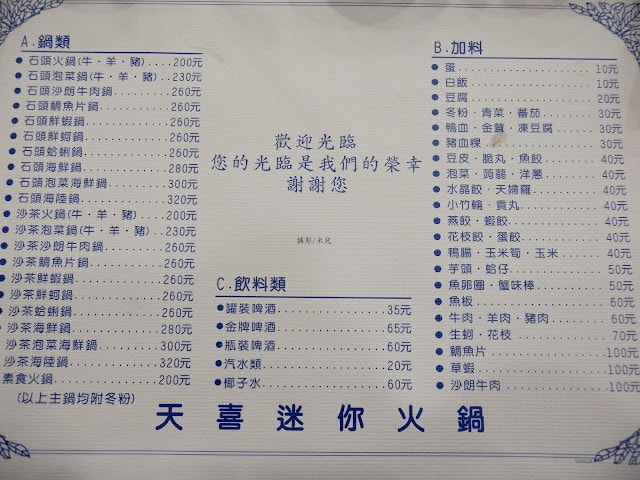 A.鍋類
●石頭火鍋(牛‧羊‧豬)....200元
●石頭泡菜鍋(牛‧羊‧豬)..230元
●石頭沙朗牛肉鍋..........260元
●石頭鯛魚片鍋............260元
●石頭鮮蝦鍋..............260元
●石頭鮮蚵鍋..............260元
●石頭蛤蜊鍋..............260元
●石頭海鮮鍋..............280元
●石頭泡菜海鮮鍋..........300元
●石頭海陸鍋..............320元
●沙茶火鍋(牛‧羊‧豬)....200元
●沙茶泡菜鍋(牛‧羊‧豬)..230元
●沙茶沙朗牛肉鍋..........260元
●沙茶鯛魚片鍋............260元
沙茶鮮蝦鍋..............260元
沙茶鮮蚵鍋..............260元
沙茶蛤蜊鍋..............260元
沙茶海鮮鍋..............280元
沙茶泡菜海鮮鍋..........300元
沙茶海陸鍋..............320元
素食火鍋................200元
(以上主鍋均附冬粉)
歡迎光臨
您的光臨是我們的榮幸
謝謝您
攝影/米兒
C.飲料類
●罐裝啤酒................35元
●金牌啤酒................65元
●瓶裝啤酒................60元
●汽水類..................20元
●椰子水..................60元
B.加料
●蛋......................10元
●白飯....................10元
●豆腐....................20元
●冬粉‧青菜‧番茄........30元
●鴨血‧金茸‧凍豆腐......30元
●豬血粿..................30元
●豆皮‧脆丸‧魚餃........40元
●泡菜‧蒟蒻‧洋蔥........40元
●水晶餃‧天婦羅..........40元
●小竹輪‧貢丸............40元
●燕餃‧蝦餃..............40元
●花枝餃‧蛋餃............40元
●鴨腸‧玉米筍‧玉米......40元
●芋頭‧蛤仔..............50元
●魚卵圈‧蟹味棒..........50元
●魚板....................60元
●牛肉‧羊肉‧豬肉........60元
●生蚵‧花枝..............70元
●鯛魚片.................100元
●草蝦...................100元
●沙朗牛肉...............100元
天喜迷你火鍋